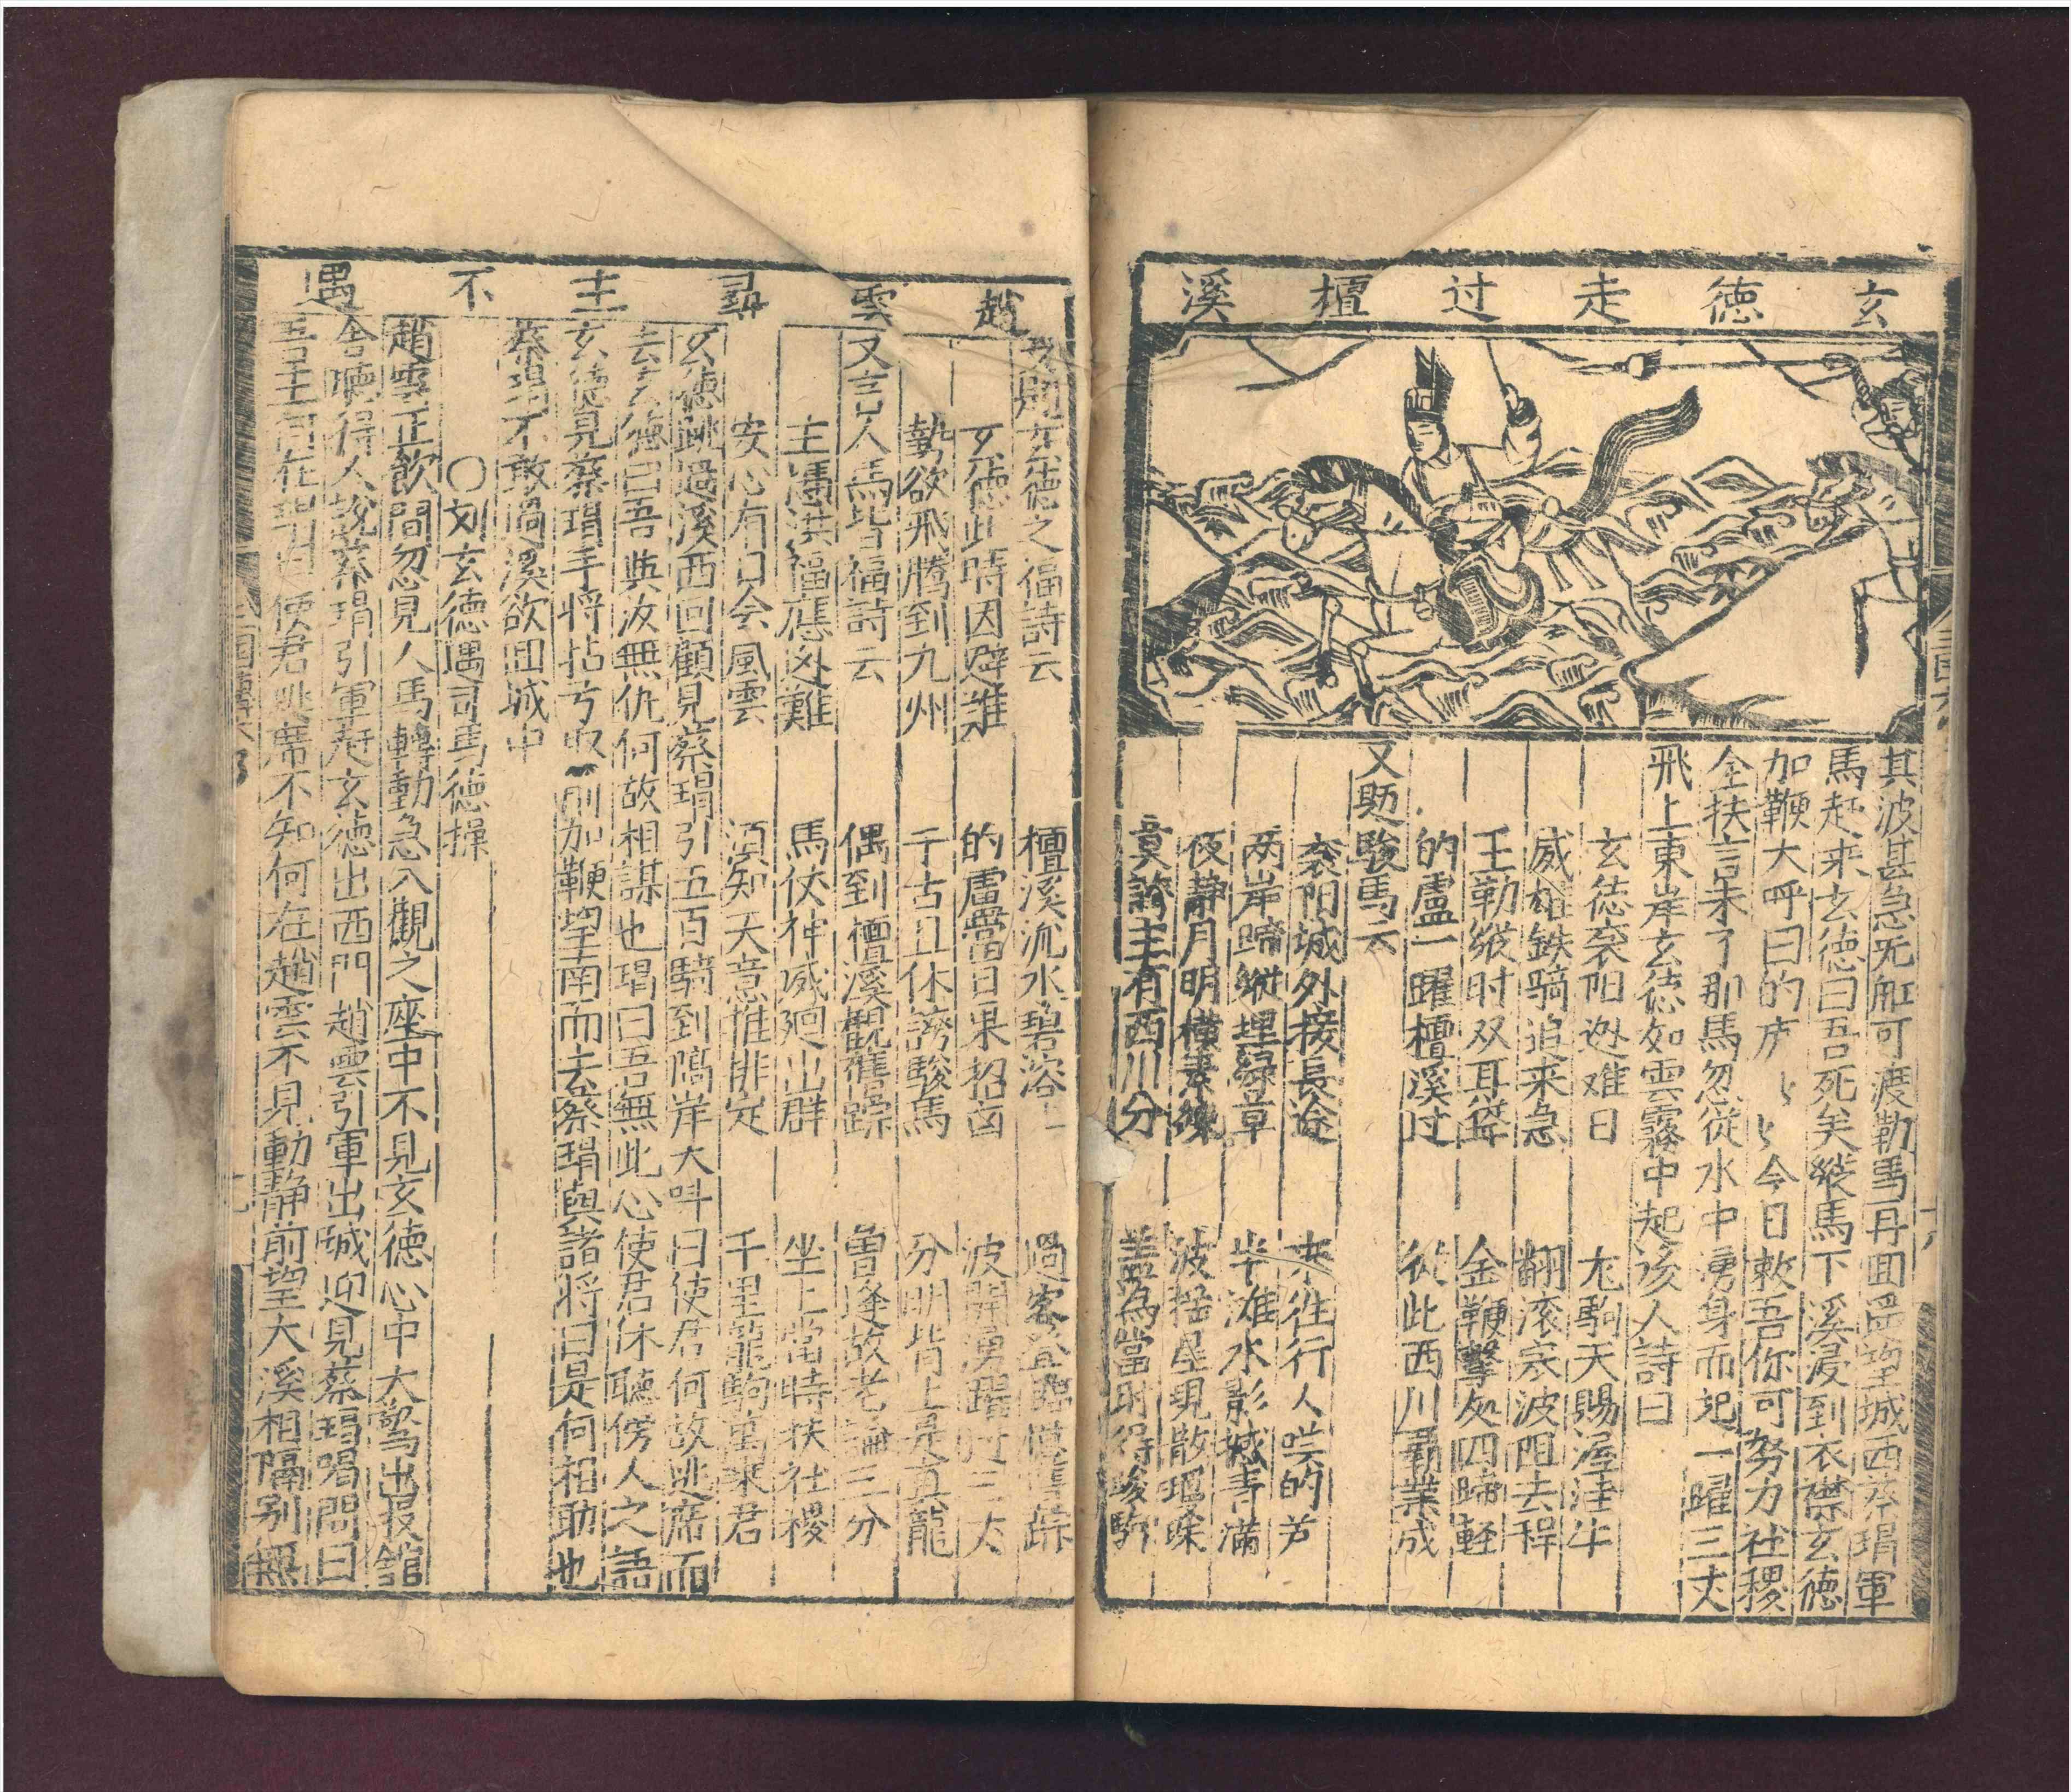 玄德走过檀溪
其波甚急旡舡可渡勒馬再回遥望城西蔡瑁軍
馬赶来玄德曰吾死矣縱馬下溪浸到衣襟玄德
加鞭大呼曰的庐〻〻今日救吾你可努力社稷
全扶言未了那馬忽從水中湧身而起一躍三丈
飛上東岸玄德如雲霧中起该人詩曰
玄德襄阳迯难日 尨駒天賜渥洼牛
威雄鉄騎追来急 翻滚寒波阻去程
玉勒縱时双耳聳 金鞭擊処四蹄輕
的盧一躍檀溪过 從此西川霸業成
又題駿馬云
襄阳城外接長途 来往行人嘆的芦
两岸蹄縱埋緑草 半滩水影撼青蒲
夜静月明横素練 波揺星現散瑶珠
莫誇主有西川分 盖為當时得駿駒
三国六
十八
趙雲尋主不遇
玄德之福詩云 檀溪流水碧溶 過客登臨憶舊踪
玄德此時因避难 的盧當日果招凶 波開湧躍时三丈
勢欲飛腾到九州 千古且休誇駿馬 分明背上是真龍
又言人馬皆福詩云 偶到檀溪觀舊踪 曾逢故老論三分
主馮洪福應迯難 馬伏神威廻出群 坐上當時扶社稷
安心有日会風雲 須知天意推排定 千里龍駒萬乘君
玄德跳過溪西回顧見蔡瑁引五百騎到隔岸大呌曰使君何故逃席而
去玄德曰吾與汝無仇何故相謀也瑁曰吾無此心使君休聽傍人之語
玄德見蔡瑁手将拈弓取箭加鞭望南而去蔡瑁與諸将曰是何相助也
蔡瑁不敢過溪欲回城中
○刘玄德遇司馬德操
趙雲正飲間忽見人馬轉動急入觀之座中不見玄德心中大驚出投舘
舍聽得人說蔡瑁引軍赶玄德出西門趙雲引軍出城迎見蔡瑁喝問曰
吾主何在瑁曰使君逃席不知何在趙雲不見動静前望大溪相隔别無